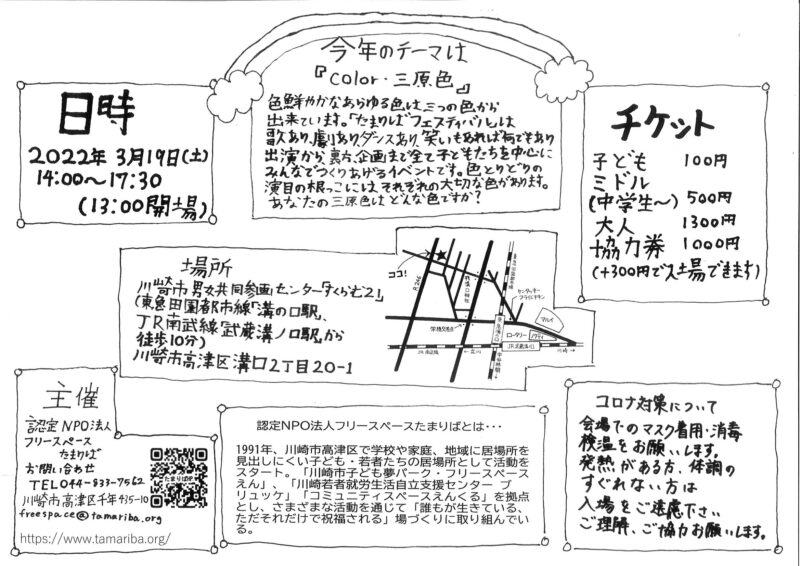 今年のテーマは
『color・三原色』
色鮮やかなあらゆる色は三つの色から
出来ています。「たまりばフェスティバル」は
歌あり、劇あり、ダンスあり、笑いもあれば何でもあり
出演から、裏方、企画まで全て子どもたちを中心に
みんなでつくりあげるイベントです。色とりどりの
演目の根っこには、それぞれの大切な色があります。
あなたの三原色はどんな色ですか?
日時
2022年3月19日(土)
14:00〜17:30
(13:00開場)
チケット
子ども 100円
ミドル
(中学生〜) 500円
大人 1300円
協力券 1000円
(+300円で入場できます)
場所
川崎市男女共同参画センター「すくらむ21」
(東急田園都市線「溝の口駅」、
JR南武線「武蔵溝ノ口駅」から
徒歩10分)
川崎市高津区溝口2丁目20-1
ココ!
R246
学校交差点
JR南武線
←立川
川崎→
ロータリー
マルイ
ノクティ
主催
認定NPO法人
フリースペース
たまりば
お問い合わせ
TEL044-833-7562
川崎市高津区千年435-10
freespace@tamariba.org
たまりばHP
https://www.tamariba.org/
認定NPO法人フリースペースたまりばとは・・・
1991年、川崎市高津区で学校や家庭、地域に居場所を
見出しにくい子ども・若者たちの居場所として活動を
スタート。「川崎市子ども夢パーク・フリースペース
えん」、「川崎若者就労生活自立支援センター ブ
リュッケ」「コミュニティスペースえんくる」を拠点
とし、さまざまな活動を通じて「誰もが生きている、
ただそれだけで祝福される」場づくりに取り組んでい
る。
コロナ対策について
会場でのマスク着用・消毒
検温をお願いします。
発熱がある方、体調の
すぐれない方は
入場をご遠慮下さい
ご理解、ご協力お願いします。